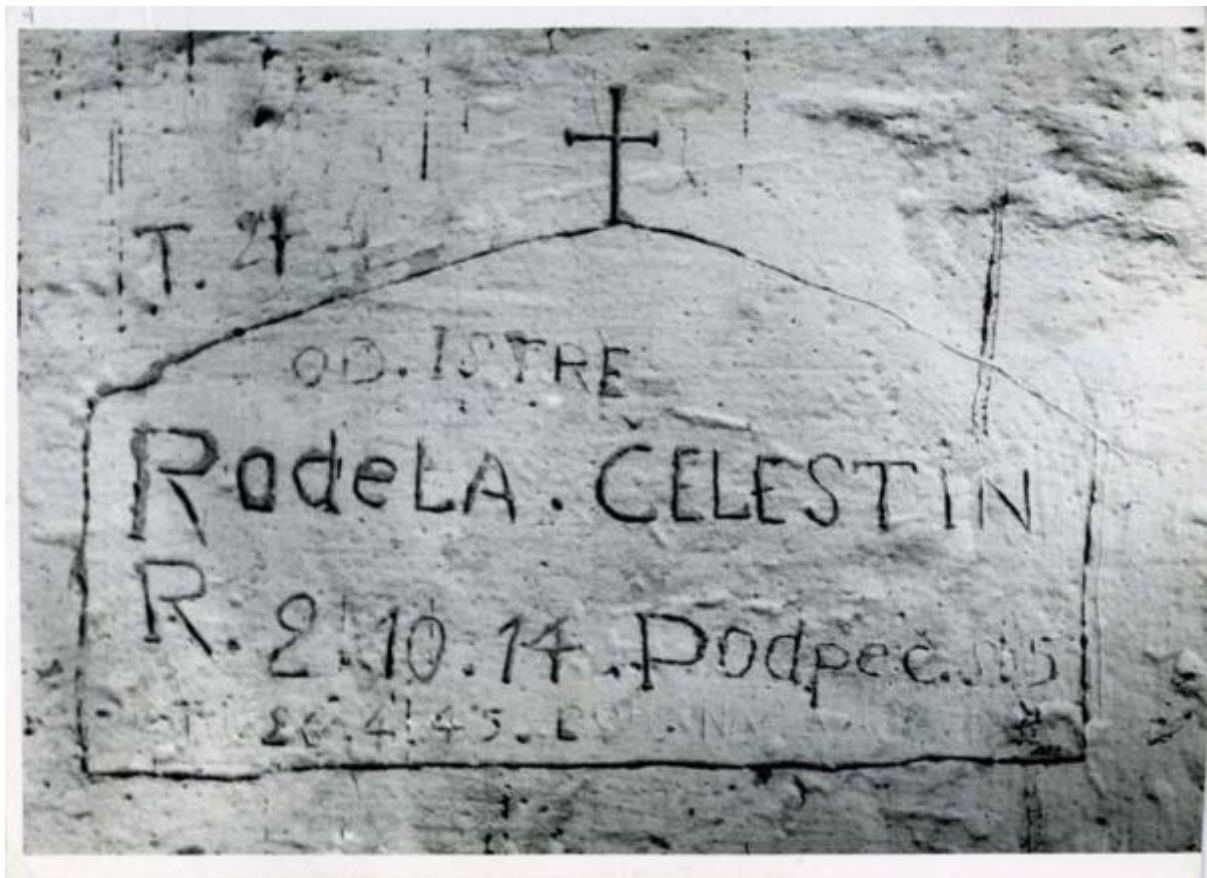 T. 21
OD. ISTRE
RodeLA. ČELESTIN
R. 2.10.14. Podpeč.
4.45.